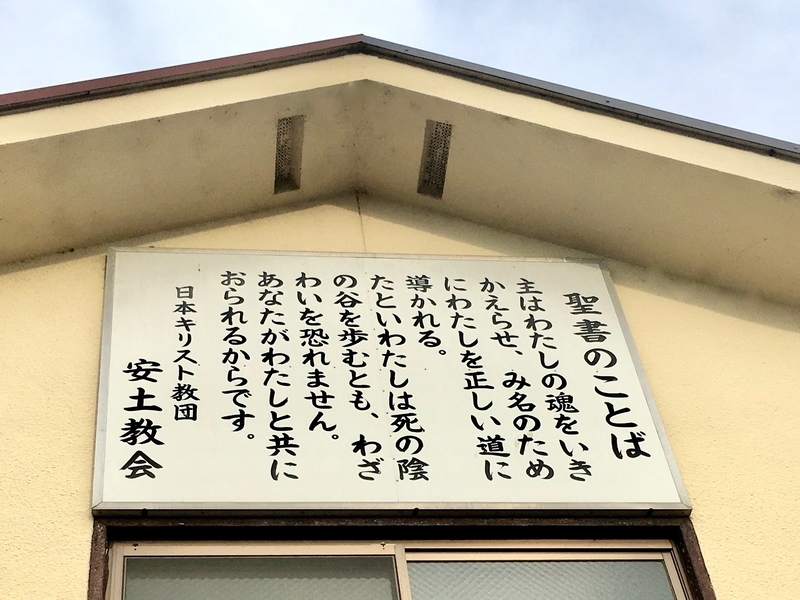 聖書のことば
主はわたしの魂をいき
かえらせ、み名のため
にわたしを正しい道に
導かれる。
たといわたしは死の陰
の谷を歩むとも、わざ
わいを恐れません。
あなたがわたしと共に
おられるからです。
日本キリスト教団
安土教会